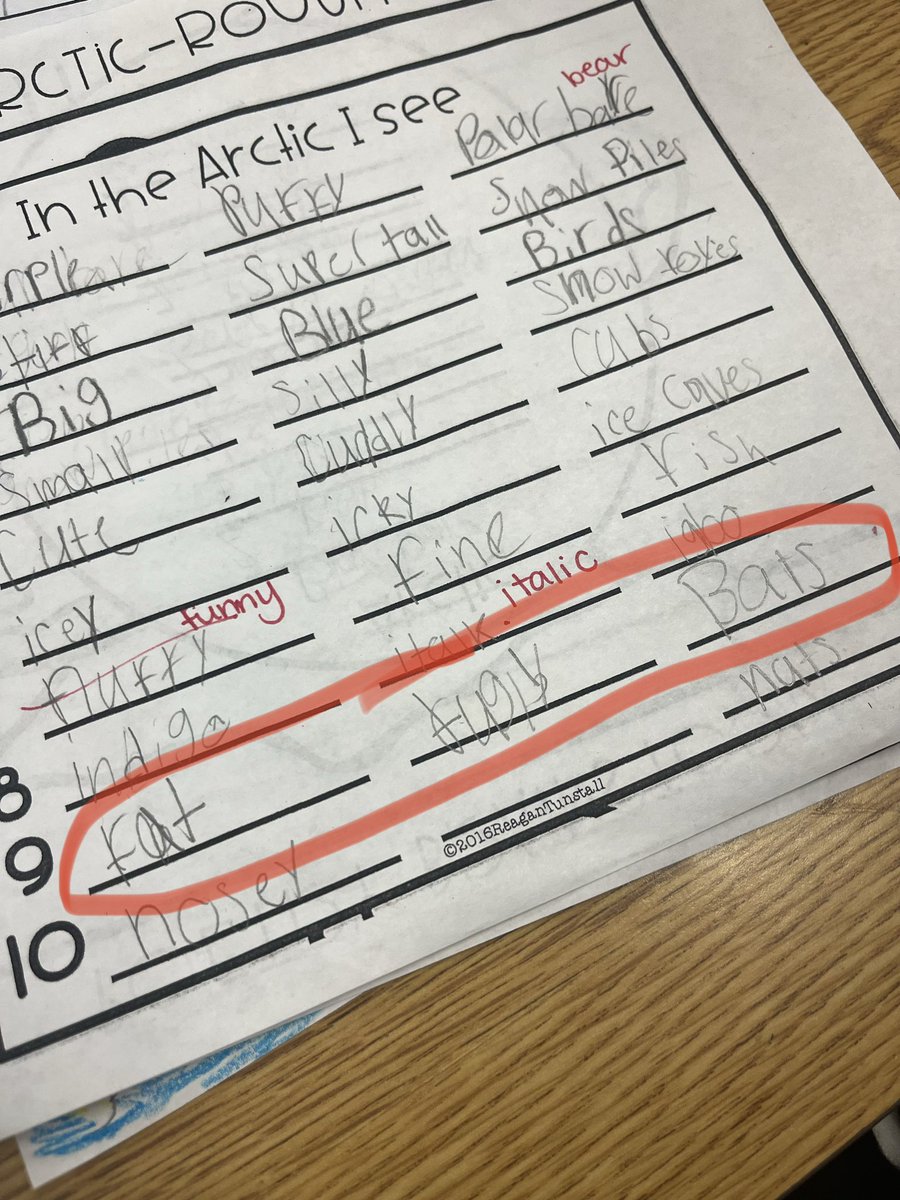 RCTIC-ROUGH
In the Arctic I see
Purry Polar bare bear
Super tall Snow Piles
Big Blue Birds
Small Silly Snow foxes
Cute Cuddly Cubs
icey icky ice Caves
fluffy funny fine fish
8 indigo italk italic igbo
9 Fat fugly Bats
10 nosey nats
©2016ReaganTunstall